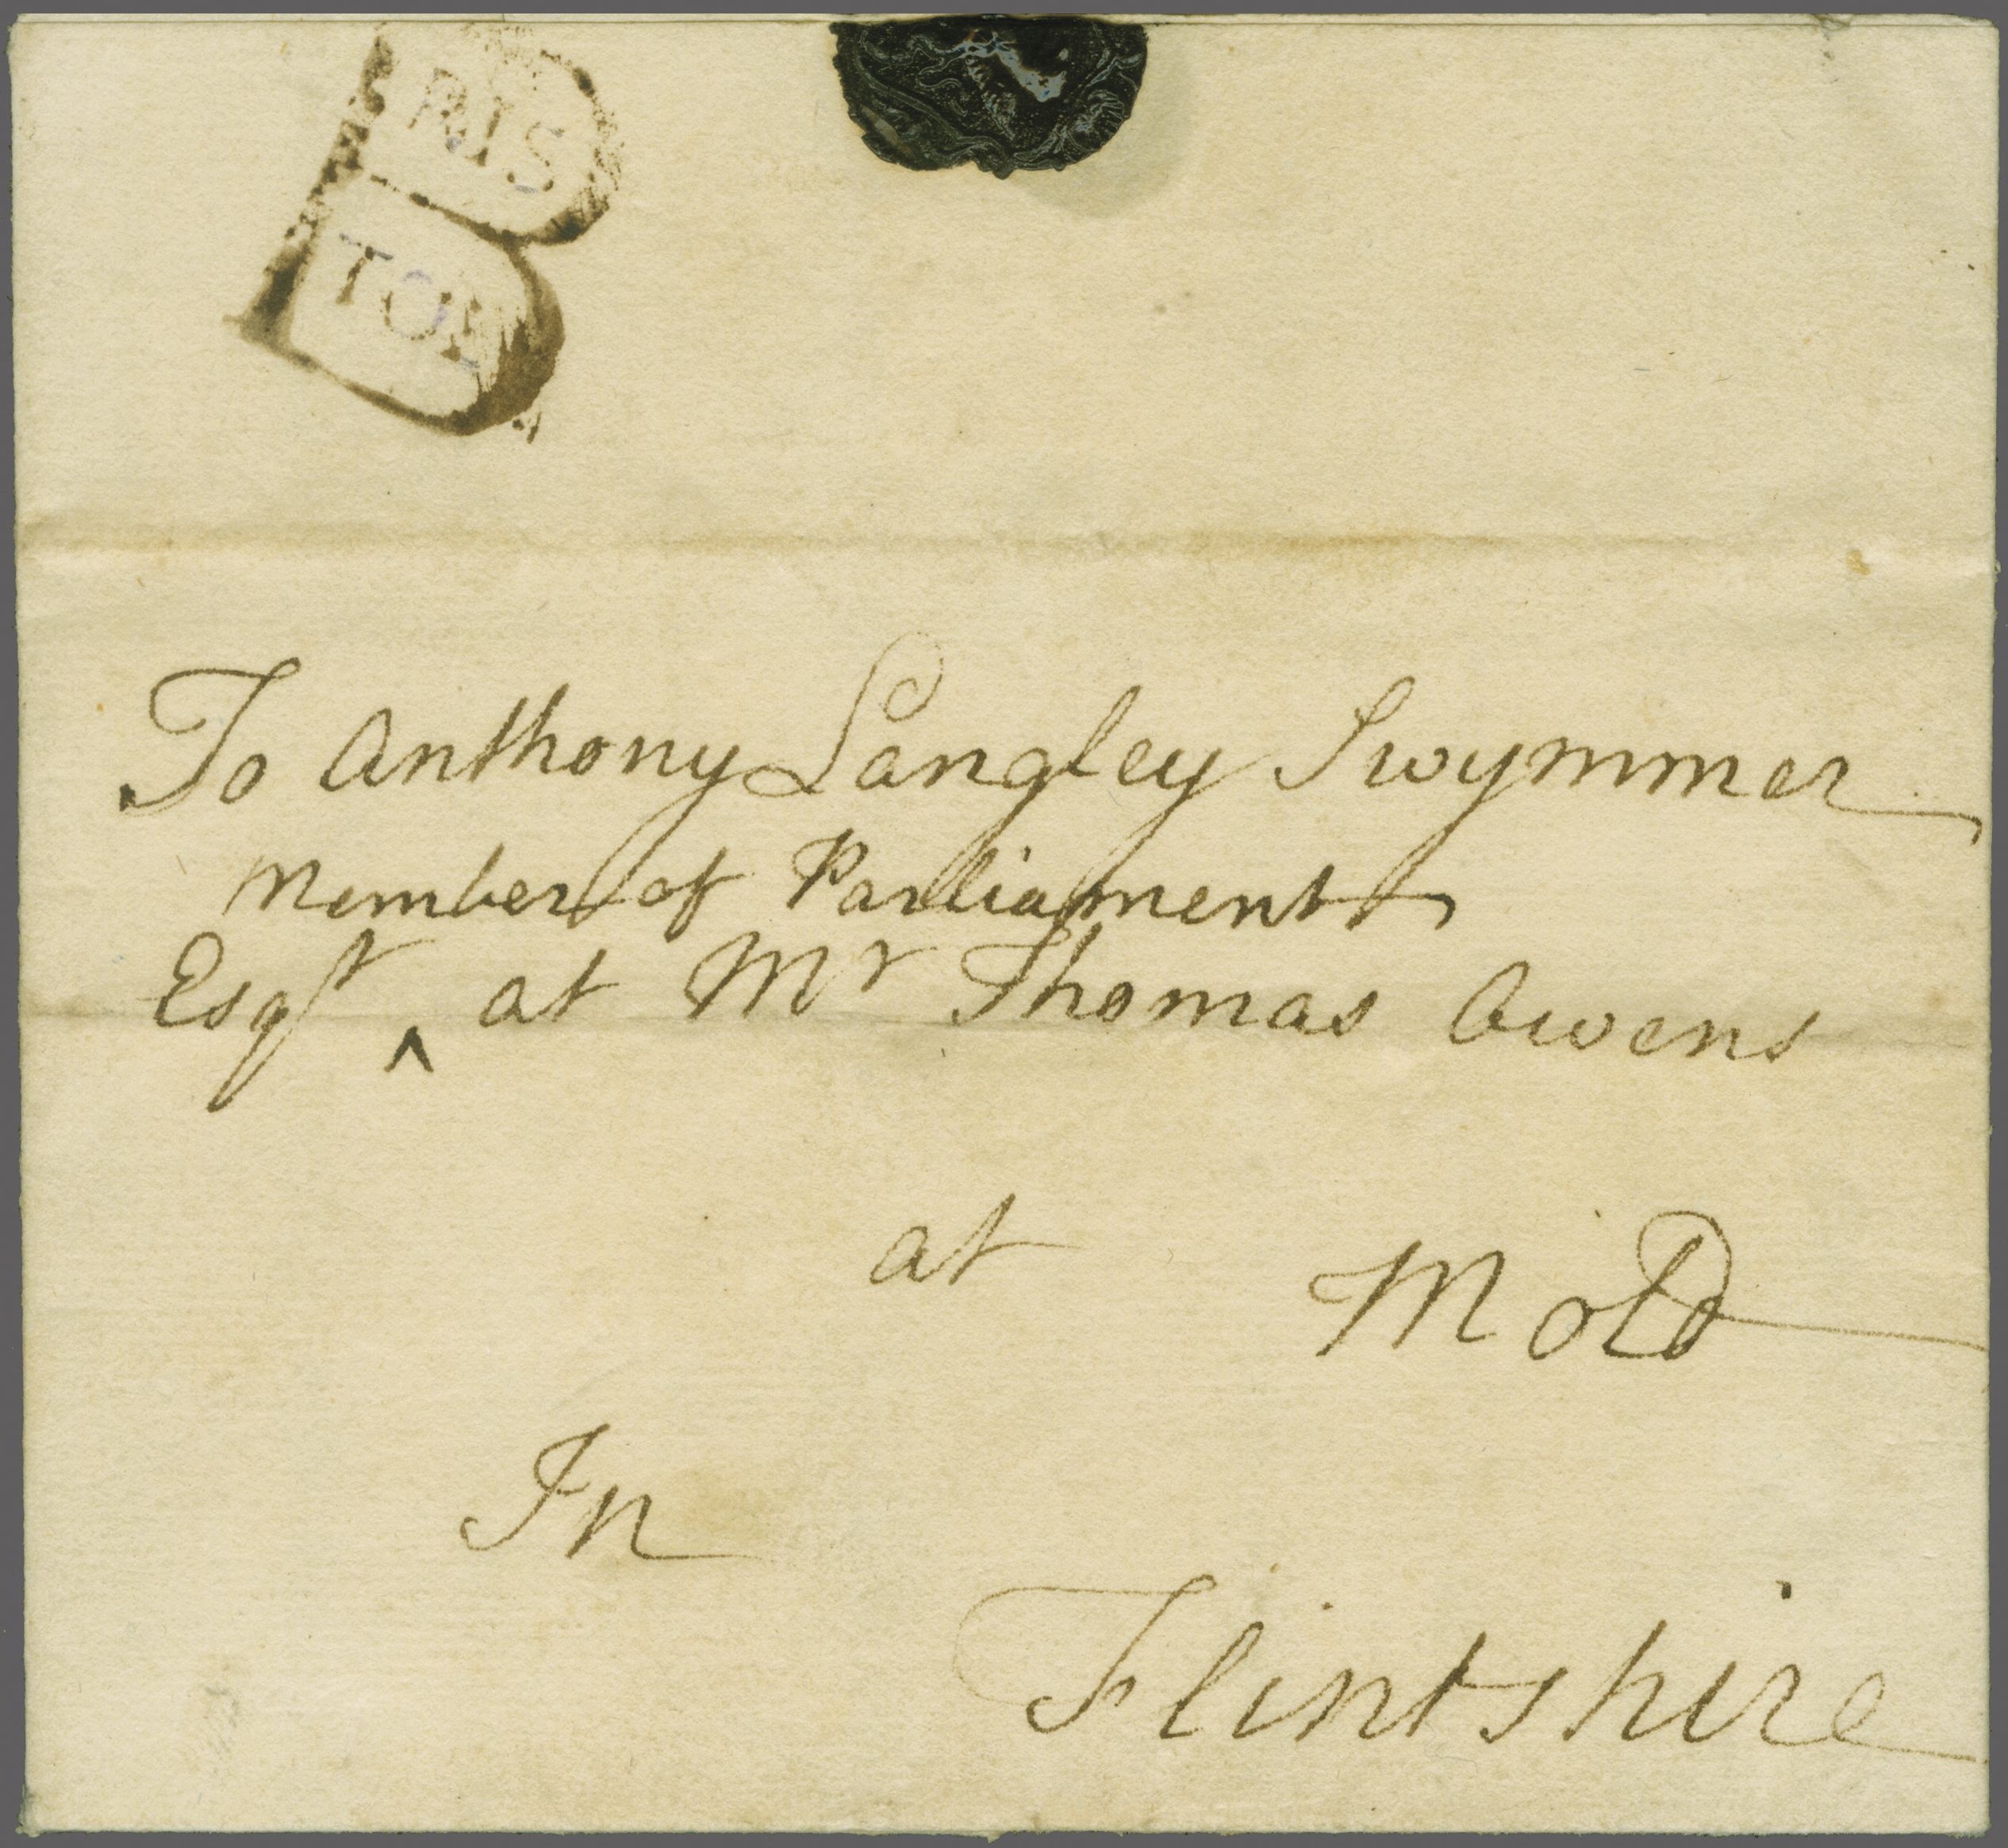 BRIS
TOL
To Anthony Langley Swymmer
Member of Parliament
Esqr ^ at Mr Thomas Owens
at Mold
In
Flintshire